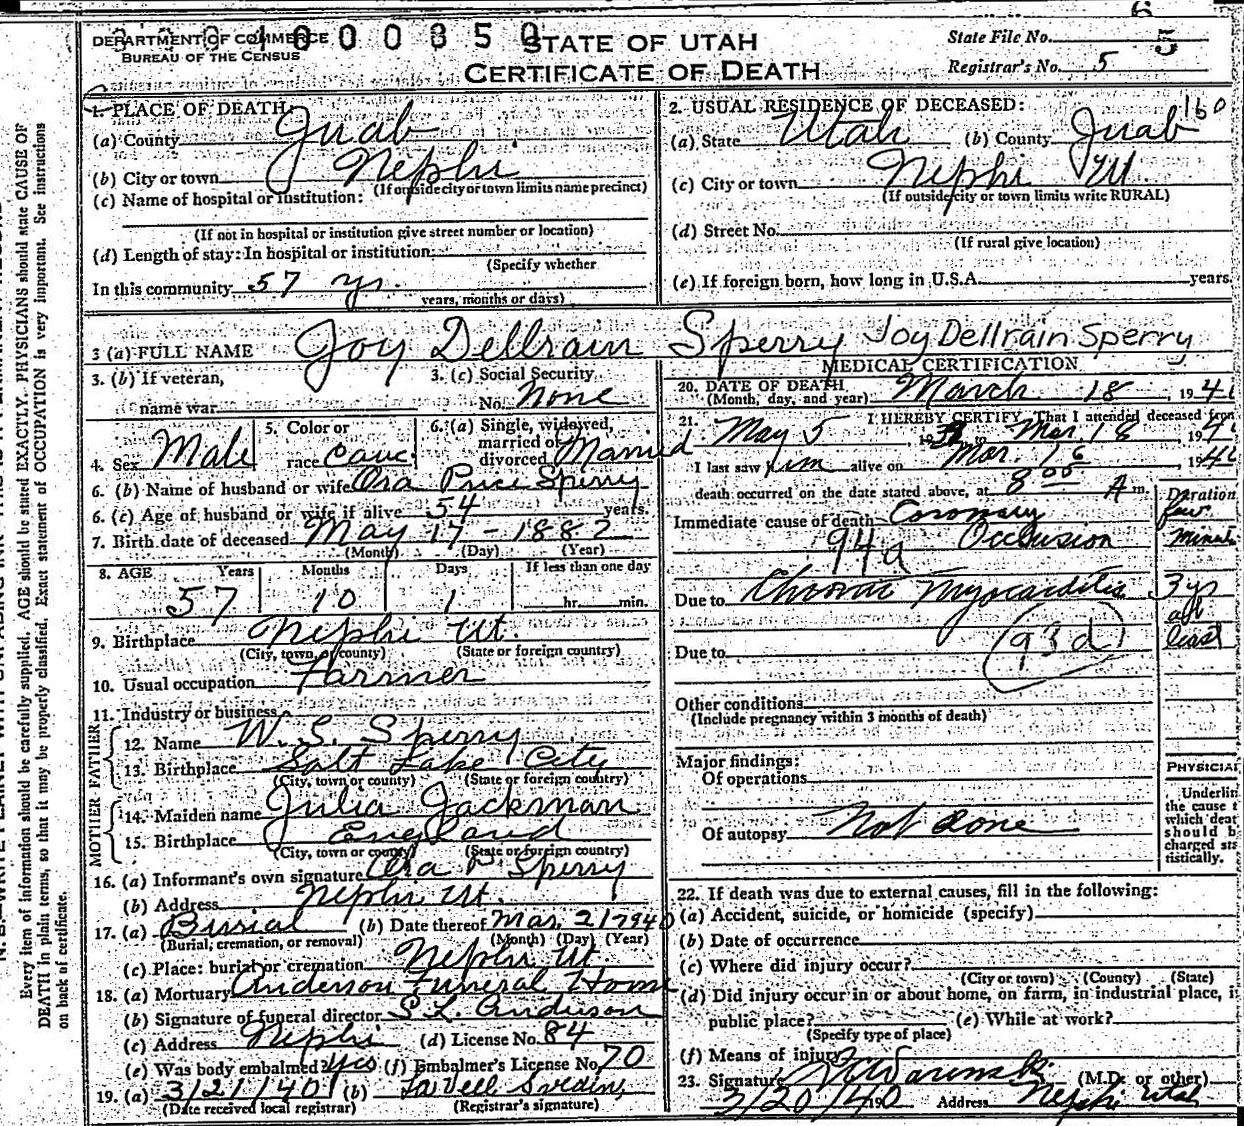 6
DEPARTMENT OF COMMERCE 1000850 STATE OF UTAH State File No. 5
BUREAU OF THE CENSUS CERTIFICATE OF DEATH Registrar's No. 5
1. PLACE OF DEATH:
(a) County Juab
(b) City or town Nephi
(If outside city or town limits name precinct)
(c) Name of hospital or institution:
(If not in hospital or institution give street number or location)
(d) Length of stay: In hospital or institution
(Specify whether
In this community 57 yr.
years, months or days)
2. USUAL RESIDENCE OF DECEASED: 160
(a) State Utah (b) County Juab
(c) City or town Nephi Ut.
(If outside city or town limits write RURAL)
(d) Street No.
(If rural give location)
(e) If foreign born, how long in U.S.A. years.
3 (a) FULL NAME Joy Dellrain Sperry Joy Dellrain Sperry
3. (b) If veteran, name war
3. (c) Social Security No. None
4. Sex Male
5. Color or race Cauc.
6. (a) Single, widowed, married or divorced Married
6. (b) Name of husband or wife Ora Price Sperry
6. (c) Age of husband or wife if alive 54 years.
7. Birth date of deceased May 17 - 1882
(Month) (Day) (Year)
8. AGE Years Months Days If less than one day
57 10 1 hr. min.
9. Birthplace Nephi Ut.
(City, town, or county) (State or foreign country)
10. Usual occupation Farmer
11. Industry or business
FATHER
12. Name W. S. Sperry
13. Birthplace Salt Lake City
(City, town or county) (State or foreign country)
MOTHER
14. Maiden name Julia Jackman
15. Birthplace England
(City, town or county) (State or foreign country)
16. (a) Informant's own signature Ora P Sperry
(b) Address Nephi Ut.
17. (a) Burial (b) Date thereof Mar. 21 1940
(Burial, cremation, or removal) (Month) (Day) (Year)
(c) Place: burial or cremation Nephi Ut
18. (a) Mortuary Anderson Funeral Home
(b) Signature of funeral director S. L. Anderson
(c) Address Nephi (d) License No. 84
(e) Was body embalmed? Yes (f) Embalmer's License No. 70
19. (a) 3/21/40 (b)
(Date received local registrar) (Registrar's signature)
MEDICAL CERTIFICATION
20. DATE OF DEATH March 18, 194
(Month, day, and year)
21. I HEREBY CERTIFY, That I attended deceased from
May 5, 19 to Mar. 18 194
I last saw him alive on Mar. 16, 194
death occurred on the date stated above, at 8 00 A m.
Duration
Immediate cause of death Coronary few
94a Occlusion
Due to Chronic Myocarditis 3 yr
at
least
Due to 93d
Other conditions
(Include pregnancy within 3 months of death)
Major findings:
Of operations
Of autopsy Not done
PHYSICIAN
Underlin
the cause t
which deat
should b
charged sta
tistically.
22. If death was due to external causes, fill in the following:
(a) Accident, suicide, or homicide (specify)
(b) Date of occurrence
(c) Where did injury occur?
(City or town) (County) (State)
(d) Did injury occur in or about home, on farm, in industrial place, i
public place? (e) While at work?
(Specify type of place)
(f) Means of injury
23. Signature (M.D. or other)
3/20/40 190 Address Nephi Utah
Every item of information should be carefully supplied. AGE should be stated EXACTLY. PHYSICIANS should state CAUSE OF
DEATH in plain terms, so that it may be properly classified. Exact statement of OCCUPATION is very important. See instructions
on back of certificate.